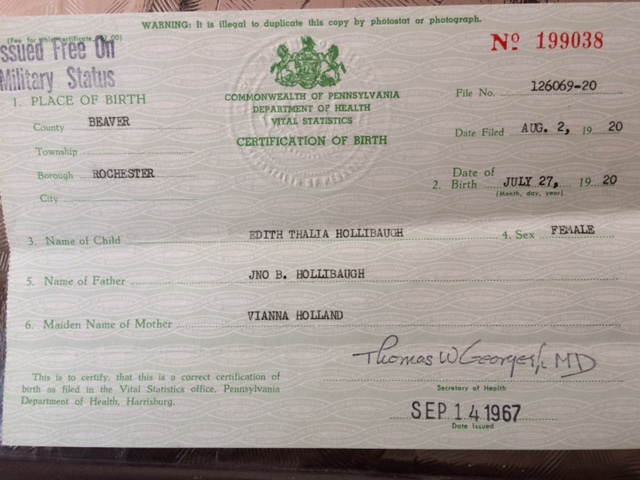 WARNING: It is illegal to duplicate this copy by photostat or photograph.
(Fee for this certificate, .00)
ssued Free On
Military Status
Nº 199038
COMMONWEALTH OF PENNSYLVANIA
DEPARTMENT OF HEALTH
VITAL STATISTICS
CERTIFICATION OF BIRTH
File No. 126069-20
Date Filed AUG. 2, 19 20
1. PLACE OF BIRTH
County BEAVER
Township
Borough ROCHESTER
City
2. Date of Birth JULY 27, 19 20
(Month, day, year)
3. Name of Child EDITH THALIA HOLLIBAUGH 4. Sex FEMALE
5. Name of Father JNO B. HOLLIBAUGH
6. Maiden Name of Mother VIANNA HOLLAND
This is to certify, that this is a correct certification of
birth as filed in the Vital Statistics office, Pennsylvania
Department of Health, Harrisburg.
Thomas W Georges Jr. MD
Secretary of Health
SEP 14 1967
Date Issued